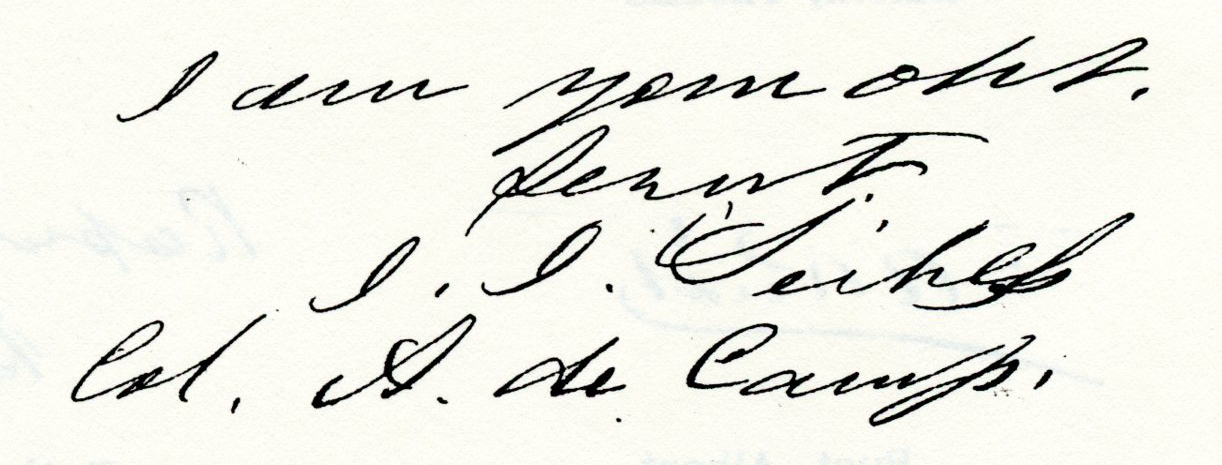 I am your obt.
Servt.
J. J. Seibels
Col. A. de Camp.